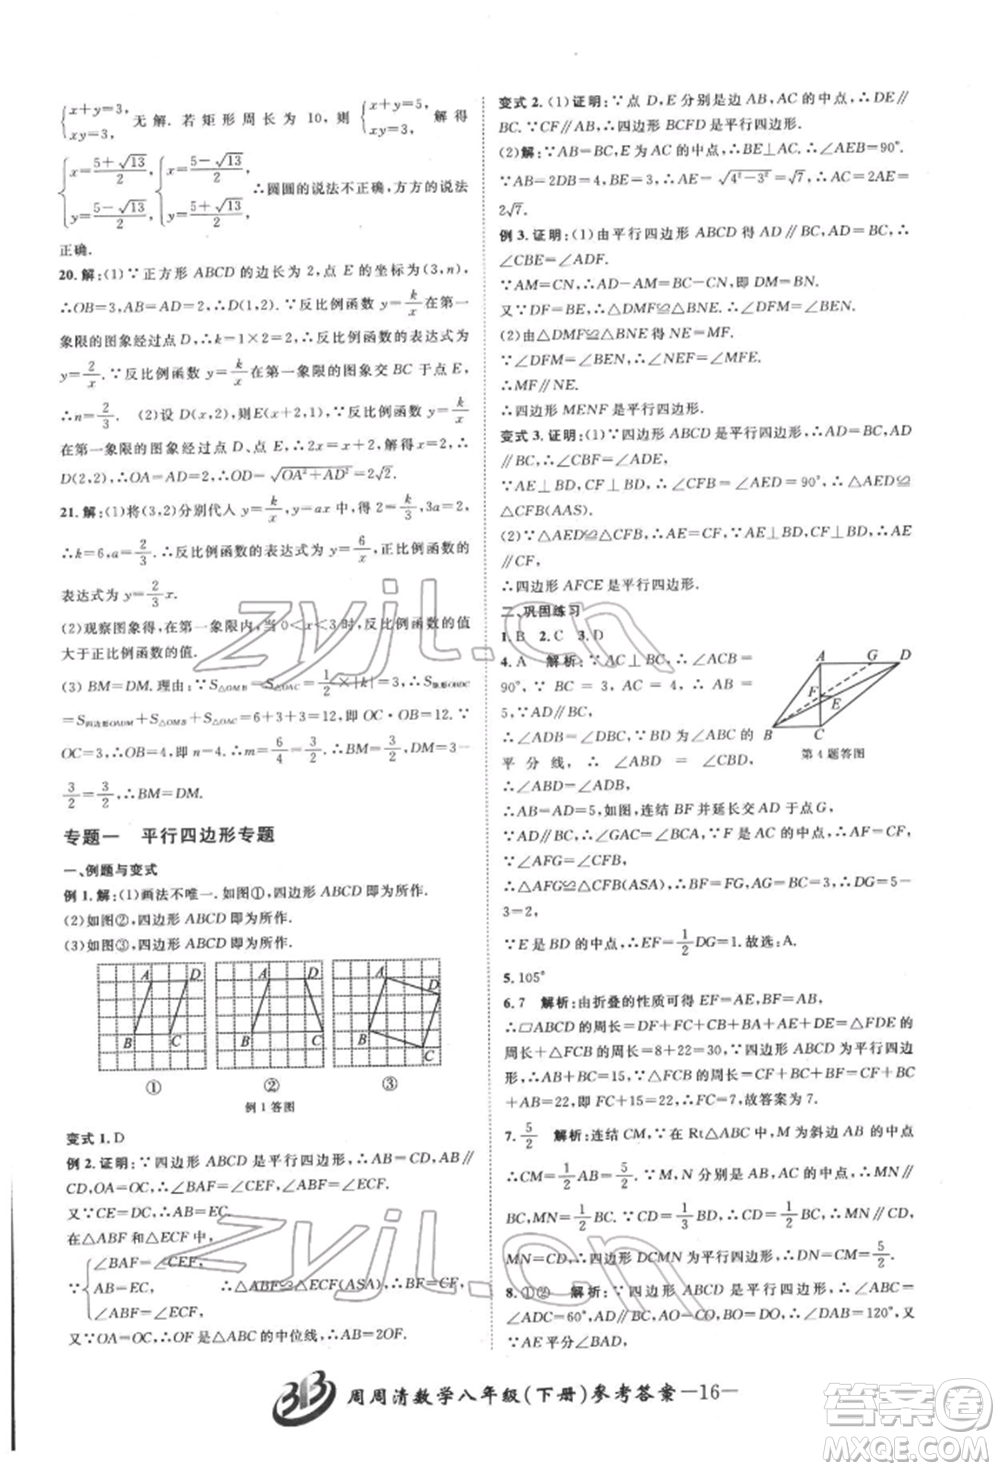 {x+y=3, xy=3, 无解. 若矩形周长为 10, 则 {x+y=5, xy=3, 解得
{x=(5+√13)/2, y=(5-√13)/2, {x=(5-√13)/2, y=(5+√13)/2, ∴圆圆的说法不正确, 方方的说法
正确.
20. 解:(1)∵正方形 ABCD 的边长为 2, 点 E 的坐标为(3,n),
∴OB=3,AB=AD=2,∴D(1,2).∵反比例函数 y=k/x 在第一
象限的图象经过点 D,∴k=1×2=2,∴反比例函数的表达式为
y=2/x.∵反比例函数在第一象限的图象交 BC 于点 E,
∴n=2/3. (2)设 D(x,2),则E(x+2,1),∵反比例函数 y=k/x
在第一象限的图象经过点 D、点 E,∴2x=x+2,解得 x=2,∴
D(2,2),∴OA=AD=2,∴OD=√(OA²+AD²)=2√2.
21. 解:(1)将(3,2)分别代人 y=k/x,y=ax 中,得 2=k/3,3a=2,
∴k=6,a=2/3,∴反比例函数的表达式为 y=6/x,正比例函数的
表达式为 y=2/3 x.
(2)观察图象得,在第一象限内,当 0<x<3时,反比例函数的值
大于正比例函数的值.
(3) BM=DM.理由:∵S△OMB=S△OAC=1/2×|k|=3,∴S矩形OBDC
=S四边形OADM+S△OMB+S△OAC=6+3+3=12,即 OC·OB=12.∵
OC=3,∴OB=4,即 n=4.∴m=6/4=3/2.∴MB=3/2,DM=3-
3/2=3/2,∴BM=DM.
专题一 平行四边形专题
一、例题与变式
例 1. 解:(1)画法不唯一.如图①,四边形 ABCD 即为所作.
(2)如图②,四边形 ABCD 即为所作.
(3)如图③,四边形 ABCD 即为所作.
A D B C
A D B C
A D B C
① ② ③
例 1 答图
变式 1. D
例 2. 证明:∵四边形 ABCD 是平行四边形,∴AB∥
CD,OA=OC,∴∠BAF=∠ECF,∠ABF=∠CEF.
又∵CE=DC,∴AB=CE.
在△ABF 和△ECF 中,
∵{∠BAF=∠ECF, AB=EC, ∠ABF=∠ECF, ∴△ABF≌△ECF(ASA),∴BF=CF.
又∵OA=OC,∴OF 是△ABC 的中位线,∴AB=2OF.
变式 2. (1)证明:∵点 D,E 分别是边 AB,AC 的中点,∴DE∥
BC.∵CF∥AB,∴四边形 BCFD 是平行四边形.
(2)解:∵AB=BC,E 为 AC 的中点,∴BE⊥AC.∴∠AEB=90°.
∵AB=2DB=4,BE=3,∴AE=√(4²-3²)=√7,∴AC=2AE=
2√7.
例 3. 证明:(1)由平行四边形 ABCD 得 AD∥BC,AD=BC,∴
∠CBE=∠ADF.
∵AM=CN,∴AD-AM=BC-CN,即 DM=BN.
又∵DF=BE,∴△DMF≌△BNE.
(2)由△DMF≌△BNE 得 NE=MF.
∵∠DFM=∠BEN,∴∠FEN=∠MFE.
∴MF∥NE.
∴四边形 MENF 是平行四边形.
变式 3. 证明:(1)∵四边形 ABCD 是平行四边形,∴AD=BC,AD∥
BC,∴∠ADE=∠CBF.
∵AE⊥BD,CF⊥BD,∴∠AED=∠CFB=90°,∴△AED≌
△CFB(AAS).
(2)∵△AED≌△CFB,∴AE=CF.∵AE⊥BD,CF⊥BD,∴AE∥
CF,
∴四边形 AFCE 是平行四边形.
二、巩固练习
1. B 2. C 3. D
4. A 解析:∵AC⊥BC,∴∠ACB=
90°,∴AB=
5,∵AD∥BC,
∴∠ADB=∠DBC.∵BD 是∠ABC的
平分线,∴∠ABD=∠CBD,∴
∠ABD=∠ADB,∴
AB=AD=5,如图,连结 BF并延长交 AD 于点 G,
∵AD∥BC,∴∠GAC=∠BCA,∵F 是 AC 的中点,∴AF=CF.
∵∠AFG=∠CFB,∴△AFG≌△CFB(ASA),∴BF=FG,AG=BC=3,∴DG=5-
3=2,
∵E 是 BD 的中点,∴EF=1/2 DG=1.故选:A.
A G D F E B C
第 4 题答图
5. 105°
6. 7 解析:由折叠的性质可得 EF=AE,BF=AB,
∴□ABCD 的周长=DF+FC+CB+BF+AE+DE=
周长+△FCB 的周长=8+22=30,∵四边形 ABCD 为平行四边
形,∴AB+BC=15.∵△FCB 的周长=FC+CB+BF=
22,∴FC+15=22,∴FC=7.故答案为:7
7. 5/2 解析:连结 CM,∵在 Rt△ABC 中,M 为斜边 AB 的中点,
∴CM=1/2 AB=5/2.∵M,N 分别是 AB,AC 的中点,∴MN∥
BC,MN=1/2 BC.
MN=CD,∴四边形 DCMN 为平行四边形,∴DN=CM=5/2.
8. ①② 解析:∵四边形 ABCD 是平行四边形,∴∠ABC=
∠ADC=60°,OA=OC,BO=DO,∴∠DAB=120°,
又∵AE 平分∠BAD,
zyjl.cn
zyjl.cn
周周清数学八年级(下册)参考答案 —16—
答案圈
MXQE.COM